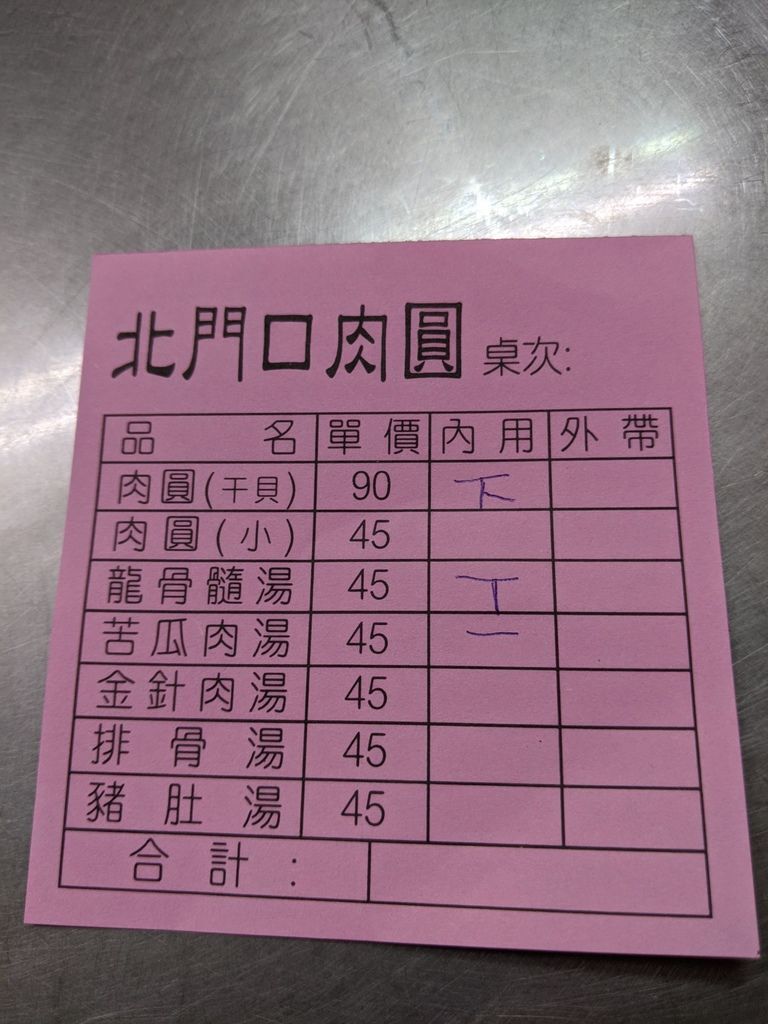 北門口肉圓 桌次:
品名 單價 內用 外帶
肉圓(干貝) 90 下
肉圓(小) 45
龍骨髓湯 45 丅
苦瓜肉湯 45 一
金針肉湯 45
排骨湯 45
豬肚湯 45
合計: